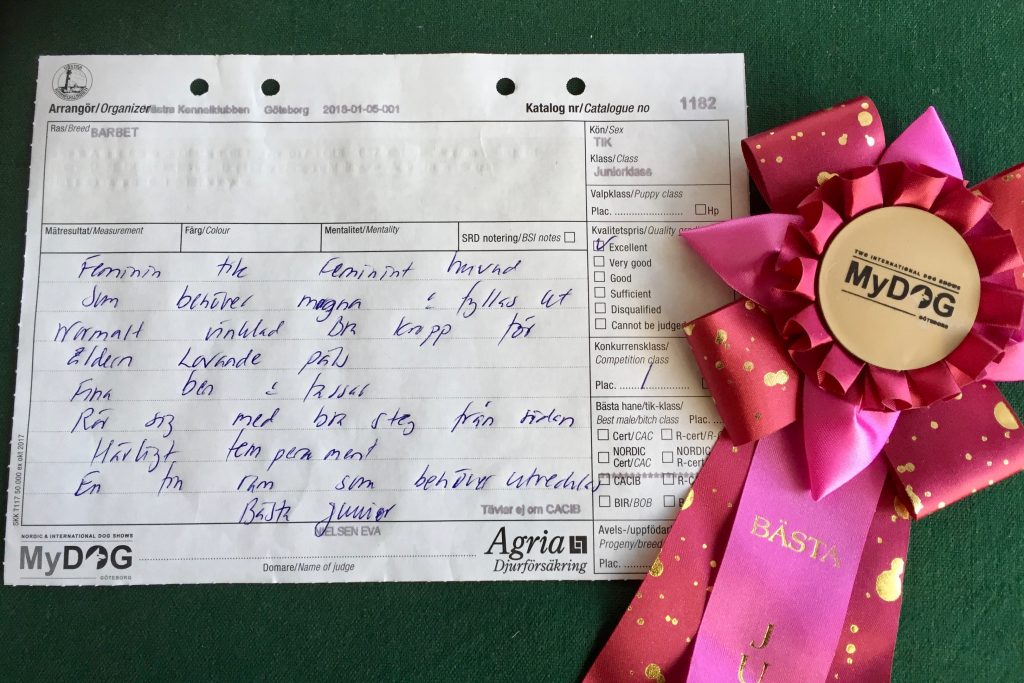 Arrangör/Organizer Västra Kennelklubben Göteborg 2018-01-05-001
Katalog nr/Catalogue no 1182
Ras/Breed BARBET
Kön/Sex
TIK
Klass/Class
Juniorklass
Valpklass/Puppy class
Plac. Hp
Mätresultat/Measurement Färg/Colour Mentalitet/Mentality SRD notering/BSI notes
Kvalitetspris/Quality
Excellent
Very good
Good
Sufficient
Disqualified
Cannot be judged
Konkurrensklass/
Competition class
Plac. 1
Bästa hane/tik-klass/
Best male/bitch class Plac.
Cert/CAC R-cert/R-
NORDIC Cert/CAC NORDIC R-cer
CACIB R-C
BIR/BOB B
Avels-/uppfödar
Progeny/breed
Plac.
Feminin tik Feminint huvud
Som behöver magna & fyllas ut
Normalt vinklad Bra kropp för
åldern Lovande päls
Fina ben & tassar
Rör sig med bra steg från sidan
Härligt temperament
En fin som behöver utvecklas
Bästa junior
Tävlar ej om CACIB
NIELSEN EVA
Domare/Name of judge
SKK T117 50.000 ex okt 2017
NORDIC & INTERNATIONAL DOG SHOWS
MyDOG
GÖTEBORG
Agria
Djurförsäkring
TWO INTERNATIONAL DOG SHOWS
MyDOG
GÖTEBORG
BÄSTA
J
U